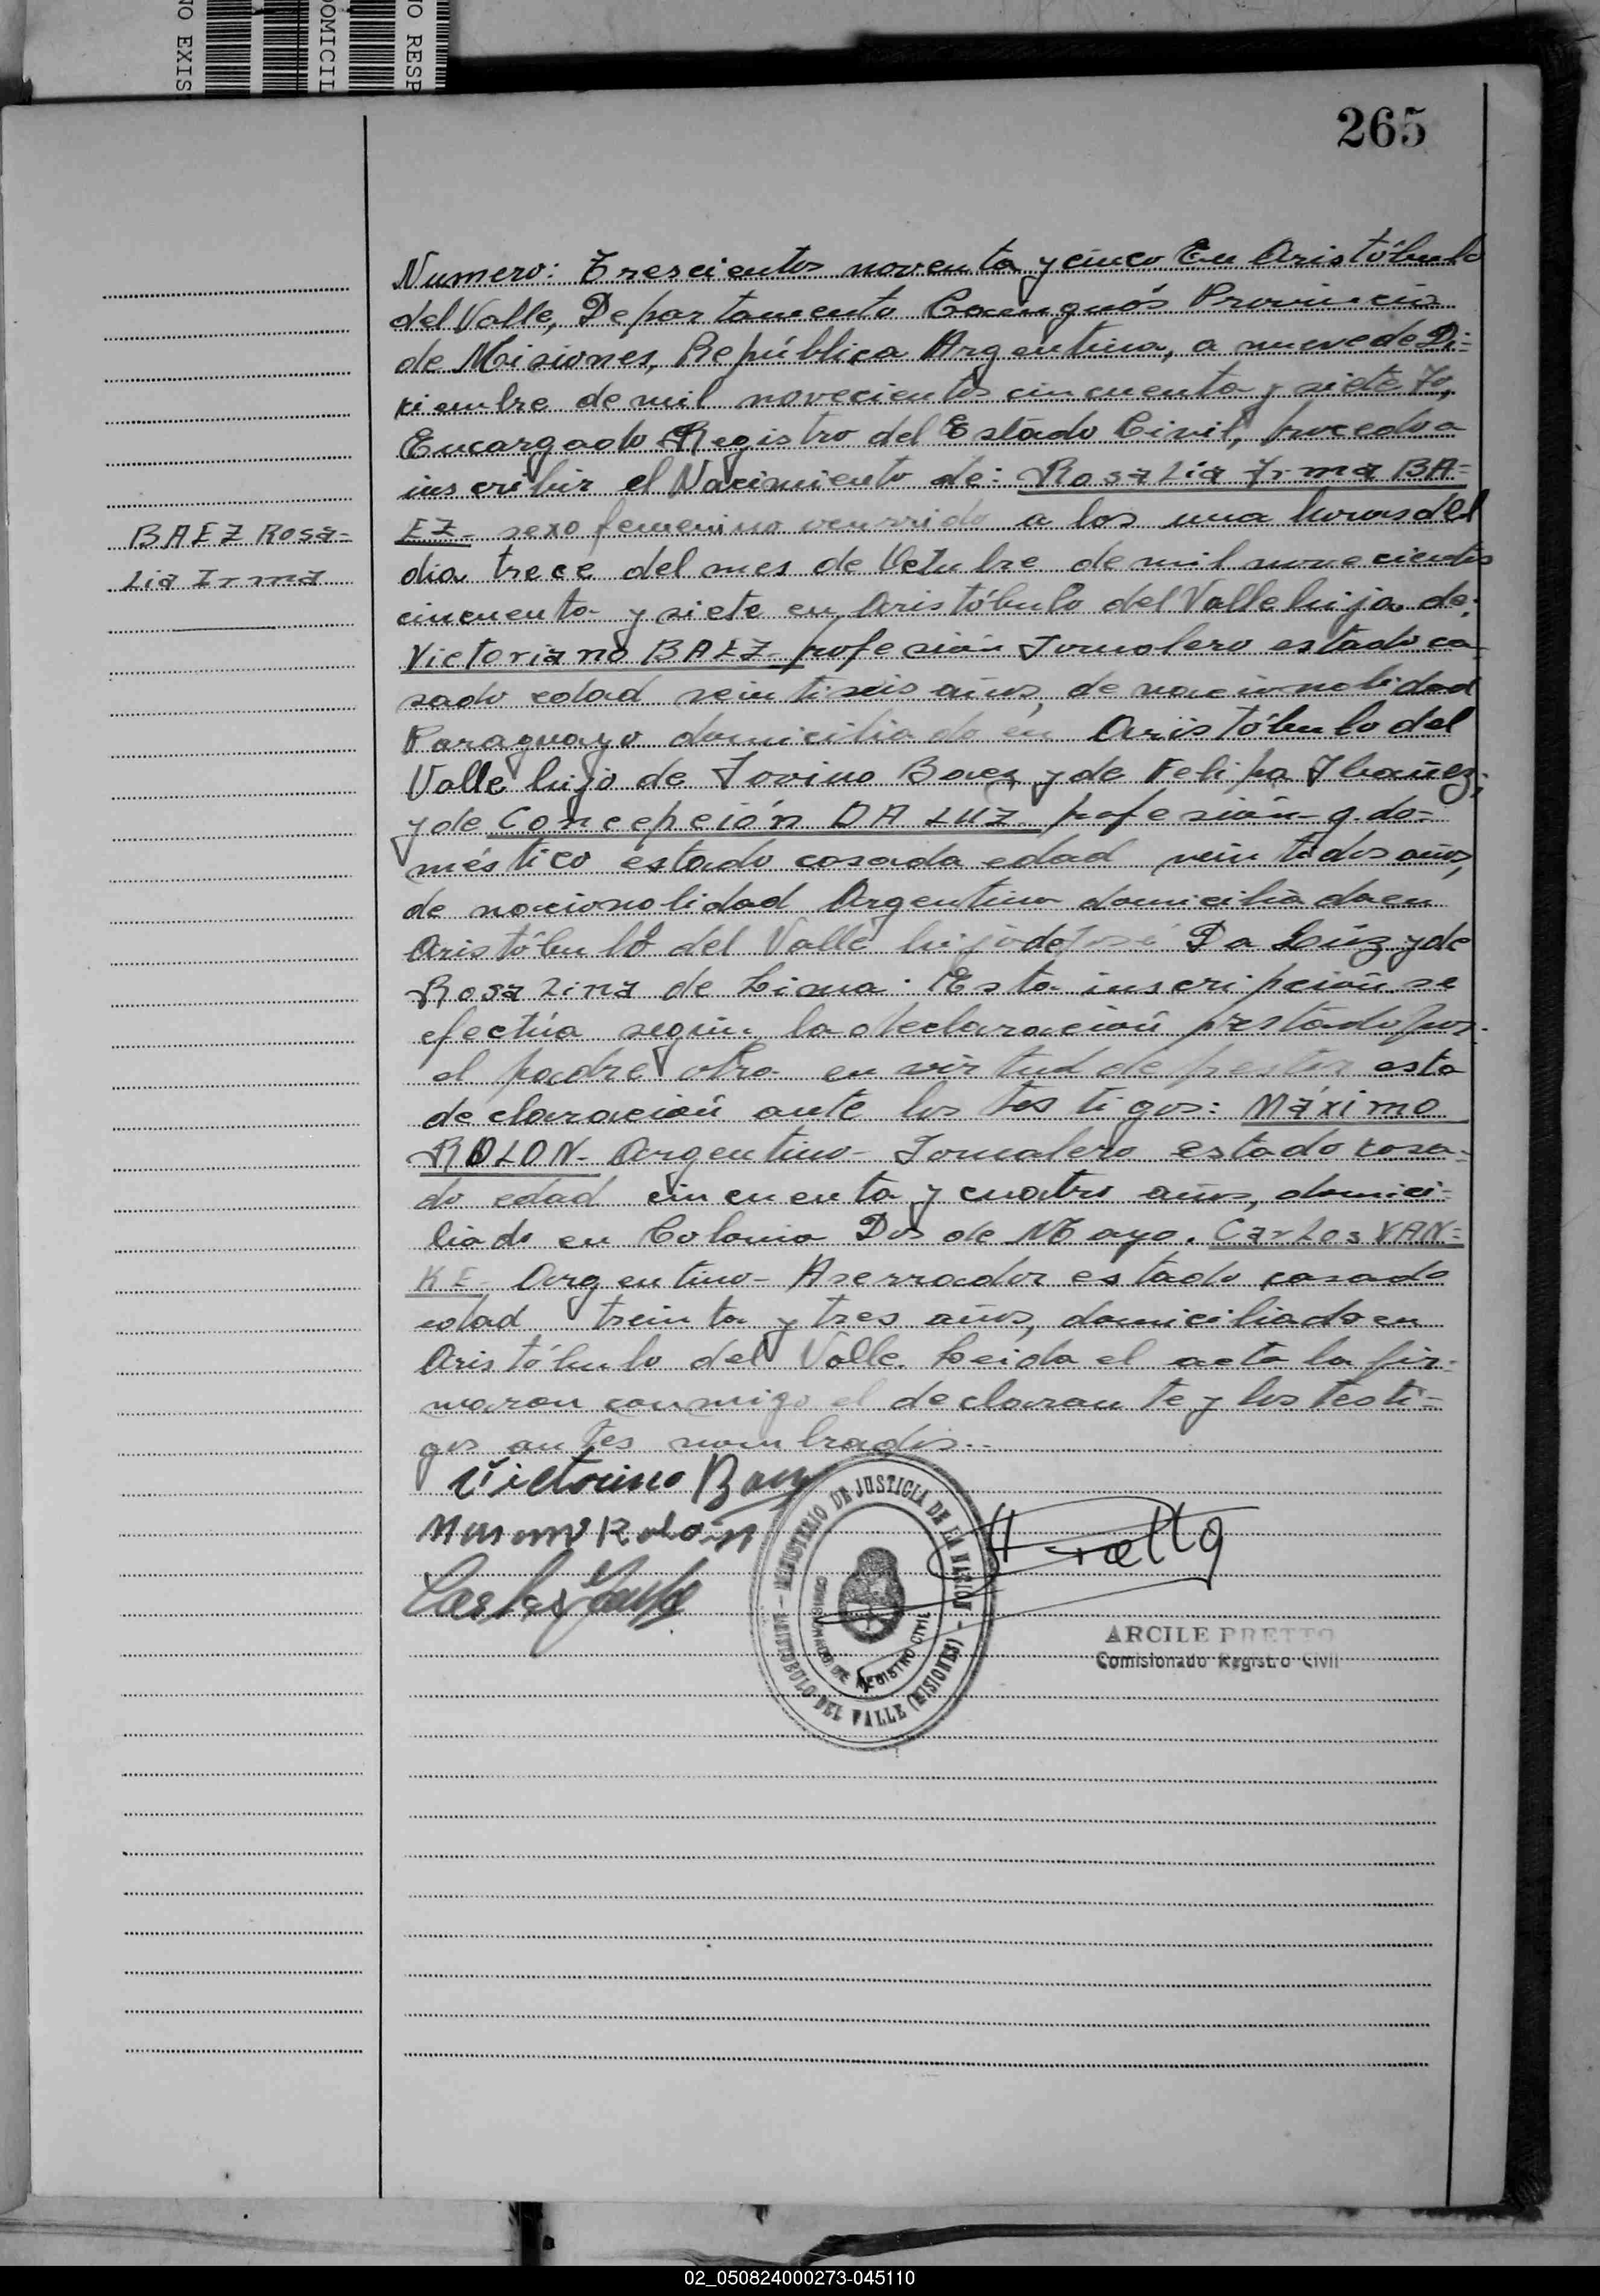 NO EXIS
DOMICIL
NO RESP
265
Numero: Trescientos noventa y cinco En Aristóbulo
del Valle, Departamento Cainguás Provincia
de Misiones, República Argentina, a nueve de Di-
ciembre de mil novecientos cincuenta y siete Yo,
Encargado Registro del Estado Civil, procedo a
inscribir el Nacimiento de: Rosalia Irma BA-
EZ- sexo femenino ocurrido a las una horas del
BAEZ Rosa-
lia Irma
dia trece del mes de Octubre de mil novecientos
cincuenta y siete en Aristóbulo del Valle hija de:
Victoriano BAEZ- profesión Jornalero estado ca-
sado edad veintiseis años, de nacionalidad
Paraguayo domiciliado en Aristóbulo del
Valle hijo de Jovino Baez y de Felipa Ibañez;
y de Concepción DA LUZ profesión q. do-
méstico estado casada edad veintidos años,
de nacionalidad Argentina domiciliada en
Aristóbulo del Valle hija de José Da Luz y de
Rosalina de Lima. Esta inscripción se
efectúa según la declaración prestado por
el padre obra en virtud de prestar esta
declaración ante los testigos: Máximo
ROLON- Argentino- Jornalero estado casa-
do edad cincuenta y cuatro años, domici-
liado en Colonia Dos de Mayo. Carlos YAN-
KE- Argentino- Aserrador estado casado
edad treinta y tres años, domiciliado en
Aristóbulo del Valle. Leida el acta la fir-
maron conmigo el declarante y los testi-
gos antes nombrados..
Victorino Baez
Masimo Rolon
MINISTERIO DE JUSTICIA DE LA NACIÓN
COMISIONADO DE REGISTRO CIVIL
ARISTOBULO DEL VALLE (MISIONES)
Pretto
Carlos Yanke
ARCILE PRETTO
Comisionado Registro Civil
02_050824000273-045110